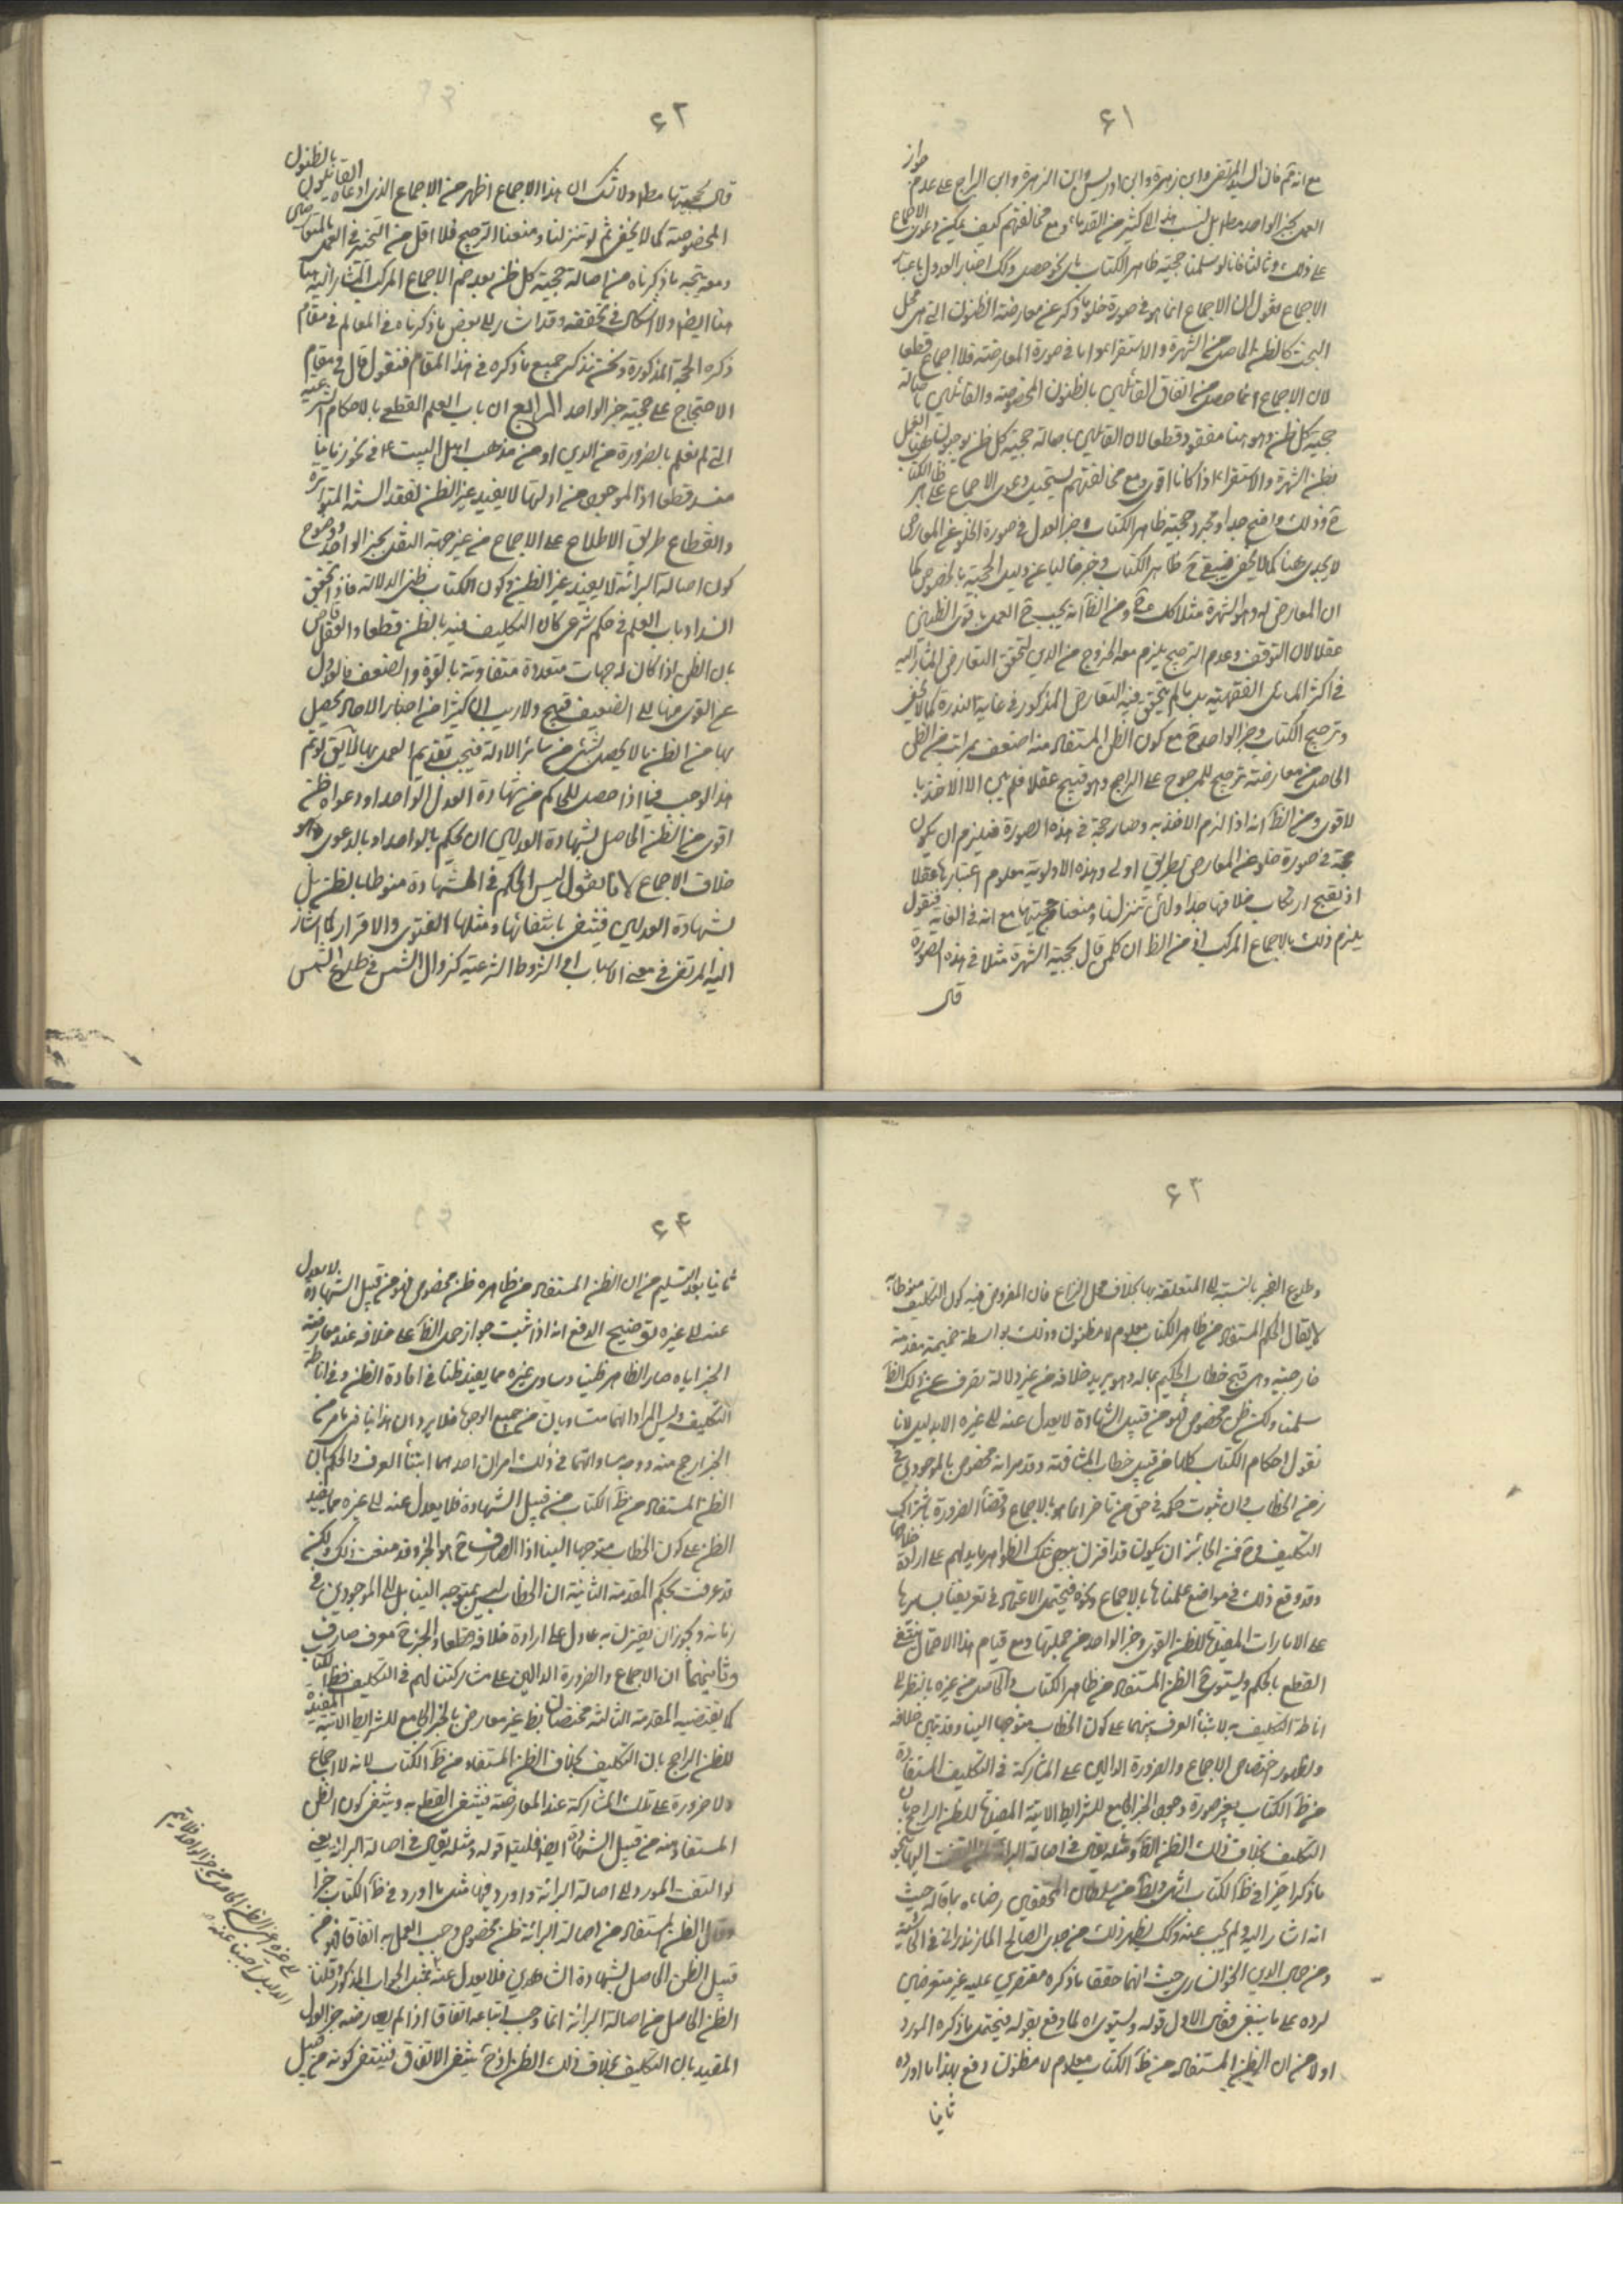 ۶۱
مع انه قد قال السيد المرتضى وابن زهرة وابن ادريس وابن البراج على عدم جواز
العمل بخبر الواحد مطلقا بل نسب هذا الى كثير من القدماء ومع مخالفتهم كيف يمكن دعوى الاجماع
على ذلك وثالثا فانا لو سلمنا حجية ظاهر الكتاب باى نحو حصل وكذا اخبار العدول باعتبار
الاجماع نقول ان الاجماع انما هو فى صورة خلو ما ذكر عن معارضة الظنون التى هى محل
البحث كالظن الحاصل من الشهرة والاستقراء واما فى صورة المعارضة فلا اجماع قطعا
لان الاجماع انما حصل من اتفاق القائلين بالظنون المخصوصة والقائلين باصالة
حجية كل ظن وهو هنا مفقود قطعا لان القائلين باصالة حجية كل ظن يوجبون هنا العمل
بظن الشهرة والاستقراء اذا كانا اقوى ومع مخالفتهم يستحيل دعوى الاجماع على ظاهر الكتاب
ح وذلك واضح جدا ومجرد حجية ظاهر الكتاب وخبر العدل فى صورة الخلو عن المعارض
لا يجدى هنا كما لا يخفى فيبقى ح ظاهر الكتاب وخبر خاليا عن دليل الحجية بالخصوص كما
ان المعارض له وهو الشهرة مثلا كذلك ومن الظ انه يجب ح العمل باقوى الظنين
عقلا لان التوقف وعدم الترجيح يلزم معه الخروج من الدين لتحقق التعارض المشار اليه
فى اكثر المسائل الفقهية بل ما لم يتحقق فيه التعارض المذكور فى غاية الندرة كما لا يخفى
وترجيح الكتاب وخبر الواحد ح مع كون الظن المستفاد منه اضعف بمراتب من الظن
الحاصل من معارضه ترجيح للمرجوح على الراجح وهو قبيح عقلا فلم يبق الا الاخذ با
لاقوى ومن الظ انه اذا لزم الاخذ به وصار حجة فى هذه الصورة فيلزم ان يكون
حجة فى صورة خلوه عن المعارض بطريق اولى وهذه الاولوية معلوم اعتبارها عقلا
اذ يقبح ارتكاب خلافها جدا ولئن تنزلنا ومنعنا حجيتها مع انه فى الغاية فنقول
يلزم ذلك بالاجماع المركب اذ من الظ ان كل من قال بحجية الشهرة مثلا فى هذه الصورة
قال
۶۲
قال بحجيتها مطلقا ولا شك ان هذا الاجماع اظهر من الاجماع الذى ادعاه القائلون بالظنون
المخصوصة كما لا يخفى ثم لو تنزلنا ومنعنا الترجيح فلا اقل من التخيير فى العمل بالمتعارضين
ومعه يتجه ما ذكرناه من اصالة حجية كل ظن بعد ضم الاجماع المركب المشار اليه هنا
هنا ايضا ولا اشكال فى تحققه وقد اشار الى بعض ما ذكرناه فى المعالم فى مقام
ذكره الحجة المذكورة ونحن نذكر جميع ما ذكره فى هذا المقام فنقول قال فى مقام
الاحتجاج على حجية خبر الواحد الرابع ان باب العلم القطعى بالاحكام الشرعية
التى لم تعلم بالضرورة من الدين او من مذهب اهل البيت ع فى نحو زماننا
منسد قطعا اذ الموجود من ادلتها لا يفيد غير الظن لفقد السنة المتواترة
وانقطاع طريق الاطلاع على الاجماع من غير جهة النقل بخبر الواحد ووضوح
كون اصالة البرائة لا يفيد غير الظن وكون الكتاب ظنى الدلالة فاذا تحقق
انسداد باب العلم فى حكم شرعى كان التكليف فيه بالظن قطعا والعقل قاض
بان الظن اذا كان له جهات متعددة متفاوتة بالقوة والضعف فالعدول
عن القوى منها الى الضعيف قبيح ولا ريب ان كثيرا من اخبار الاحاد يحصل
بها من الظن ما لا يحصل بشئ من سائر الادلة فيجب تقديم العمل بها لا يق لو تم
هذا لوجب فيما اذا حصل للحاكم من شهادة العدل الواحد او دعواه ظن
اقوى من الظن الحاصل بشهادة العدلين ان يحكم بالواحد او بالدعوى وهو
خلاف الاجماع لانا نقول ليس الحكم فى الشهادة منوطا بالظن بل
بشهادة العدلين فينتفى بانتفائها ومثلها الفتوى والاقرار كما اشار
اليه المرتضى فى معنى الاسباب او الشروط الشرعية كزوال الشمس فى طلوع الشمس
۶۳
وطلوع الفجر بالنسبة الى المتعلقة بها بخلاف محل النزاع فان المفروض فيه كون التكليف منوطا به
لا يقال الحكم المستفاد من ظاهر الكتاب معلوم لا مظنون وذلك بواسطة ضميمة مقدمة
خارجية وهى قبح خطاب الحكيم بما له وهو يريد خلافه من غير دلالة تصرف عن ذلك الظ
سلمنا ولكن ظن مخصوص فهو من قبيل الشهادة لا يعدل عنه الى غيره الا بدليل لانا
نقول احكام الكتاب كلها من قبيل خطاب المشافهة وقد مر انه مخصوص بالموجودين فى
زمن الخطاب وان ثبوت حكمه فى حق من تاخر انما هو بالاجماع وقضاء الضرورة باشتراك
التكليف وح فمن الجائز ان يكون قد اقترن ببعض تلك الظواهر ما يدلهم على ارادة خلافها
وقد وقع ذلك فى مواضع علمناها بالاجماع ونحوه فيحتمل الاعتماد فى تعريفنا بسائرها
على الامارات المفيدة للظن القوى وخبر الواحد من جملتها ومع قيام هذا الاحتمال ينتفى
القطع بالحكم ويستوى ح الظن المستفاد من ظاهر الكتاب والحاصل من غيره بالنظر الى
اناطة التكليف به لابتناء الفرق بينهما على كون الخطاب متوجها الينا وقد تبين خلافه
ولظهور اختصاص الاجماع والضرورة الدالين على المشاركة فى التكليف المستفادة
من ظ الكتاب بغير صورة وجود الخبر الجامع للشرايط الاتية المفيدة للظن الراجح بان
التكليف بخلاف ذلك الظن الظ ومثله يقال فى اصالة البرائة لمن التفت اليها بنحو
ما ذكر اخيرا فى ظ الكتاب انتهى والظ من سلطان المحققين رضاه بما قاله حيث
انه اشار اليه ولم يجب عنه وكذا يظهر ذلك من جدى الصالح المازندرانى فى الحاشية
ومن جمال الدين الخوانسارى حيث انهما حققا ما ذكره مقتصرين عليه غير متعرضين
لرده على ما ينبغى فقال الاول قوله ويستوى اه لما دفع بقوله فيحتمل ما ذكره المورد
اولا من ان الظن المستفاد من ظ الكتاب معلوم لا مظنون دفع بهذا ما اورده
ثانيا
۶۴
ثانيا بعد التسليم من ان الظن المستفاد من ظاهره ظن مخصوص فهو من قبيل الشهادة لا يعدل
عنه الى غيره توضيح الدفع انه اذا ثبت جواز حمل الظ على خلافه عند معارضة
الخبر اياه صار الظاهر ظنيا وساوى غيره مما يفيد ظنا فى افادة الظن وفى اناطة
التكليف وليس المراد انهما متساويان من جميع الوجوه فلا يرد ان هذا ينافى ما مر من
الخبر ارجح منه ووجه مساواتهما فى ذلك امران احدهما ابتناء الفرق والحكم بان
الظن المستفاد من ظ الكتاب من قبيل الشهادة فلا يعدل عنه الى غيره مما يفيد
الظن على كون الخطاب متوجها الينا اذ الصارف ح هو الخبر وقد منعت ذلك ولكن
قد عرفت بحكم المقدمة الثانية ان الخطاب ليس بمتوجه الينا بل الى الموجودين فى
زمانه ويجوز ان يقترن به ما دل على ارادة خلافه قطعا والخبر ح معرف صارف
وثانيهما ان الاجماع والضرورة الدالين على مشاركتنا لهم فى التكليف بظ الكتاب
كما تقتضيه المقدمة الثالثة مختصان بظ غير معارض بالخبر الجامع للشرايط الاتية المفيدة
للظن الراجح بان التكليف بخلاف الظن المستفاد من ظ الكتاب لانه لا اجماع
ولا ضرورة على تلك المشاركة عند المعارضة فينتفى القطع به وينتفى كون الظن
المستفاد منه من قبيل الشهادة ايضا فليتأمل قوله ومثله يقال فى اصالة البرائة يعنى
لو التفت المورد الى اصالة البرائة واورد فيها مثل ما اورد فى ظ الكتاب خيرا
وقال الظن المستفاد من اصالة البرائة ظن مخصوص وجب العمل به اتفاقا فهو من
قبيل الظن الحاصل بشهادة الشاهدين فلا يعدل عنه بمثل الجواب المذكور وقلنا
الظن الحاصل من اصالة البرائة انما وجب اتباعه اتفاقا اذا لم يعارضه خبر العدل
المقيد بان التكليف بخلاف ذلك الظن اذ ح ينتفى الاتفاق فينتفى كونه من قبيل
الى غيره اعنى الظن الحاصل من خبر الواحد فلا يتم
الدليل اجبنا عنه